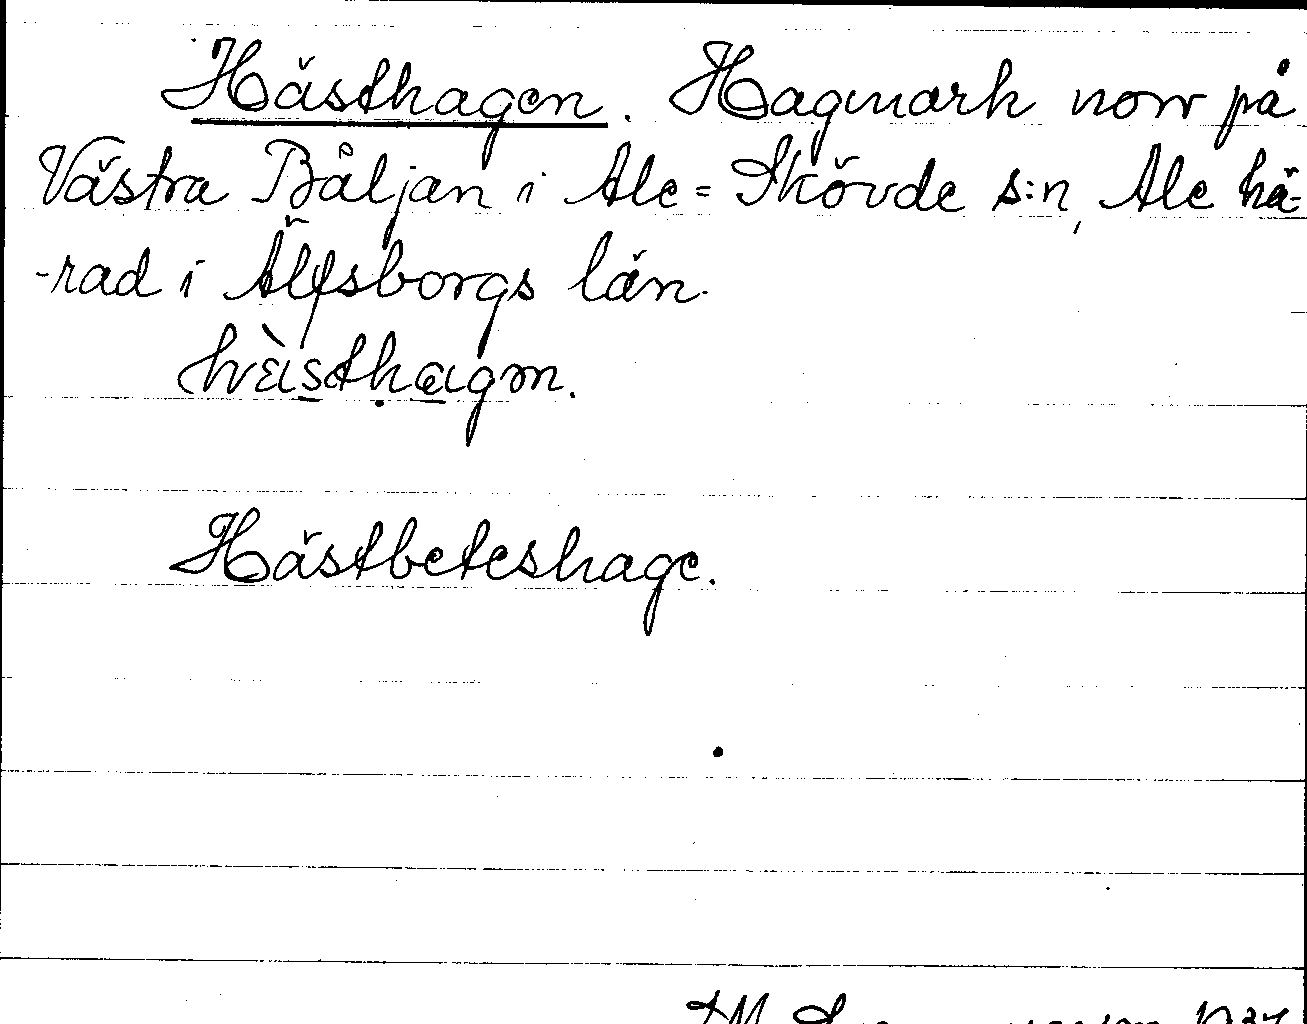 Hästhagen. Hagmark norr på
Västra Båljan i Ale=Skövde s:n, Ale hä-
-rad i Älfsborgs län.
hẁästhagen.
Hästbeteshage.